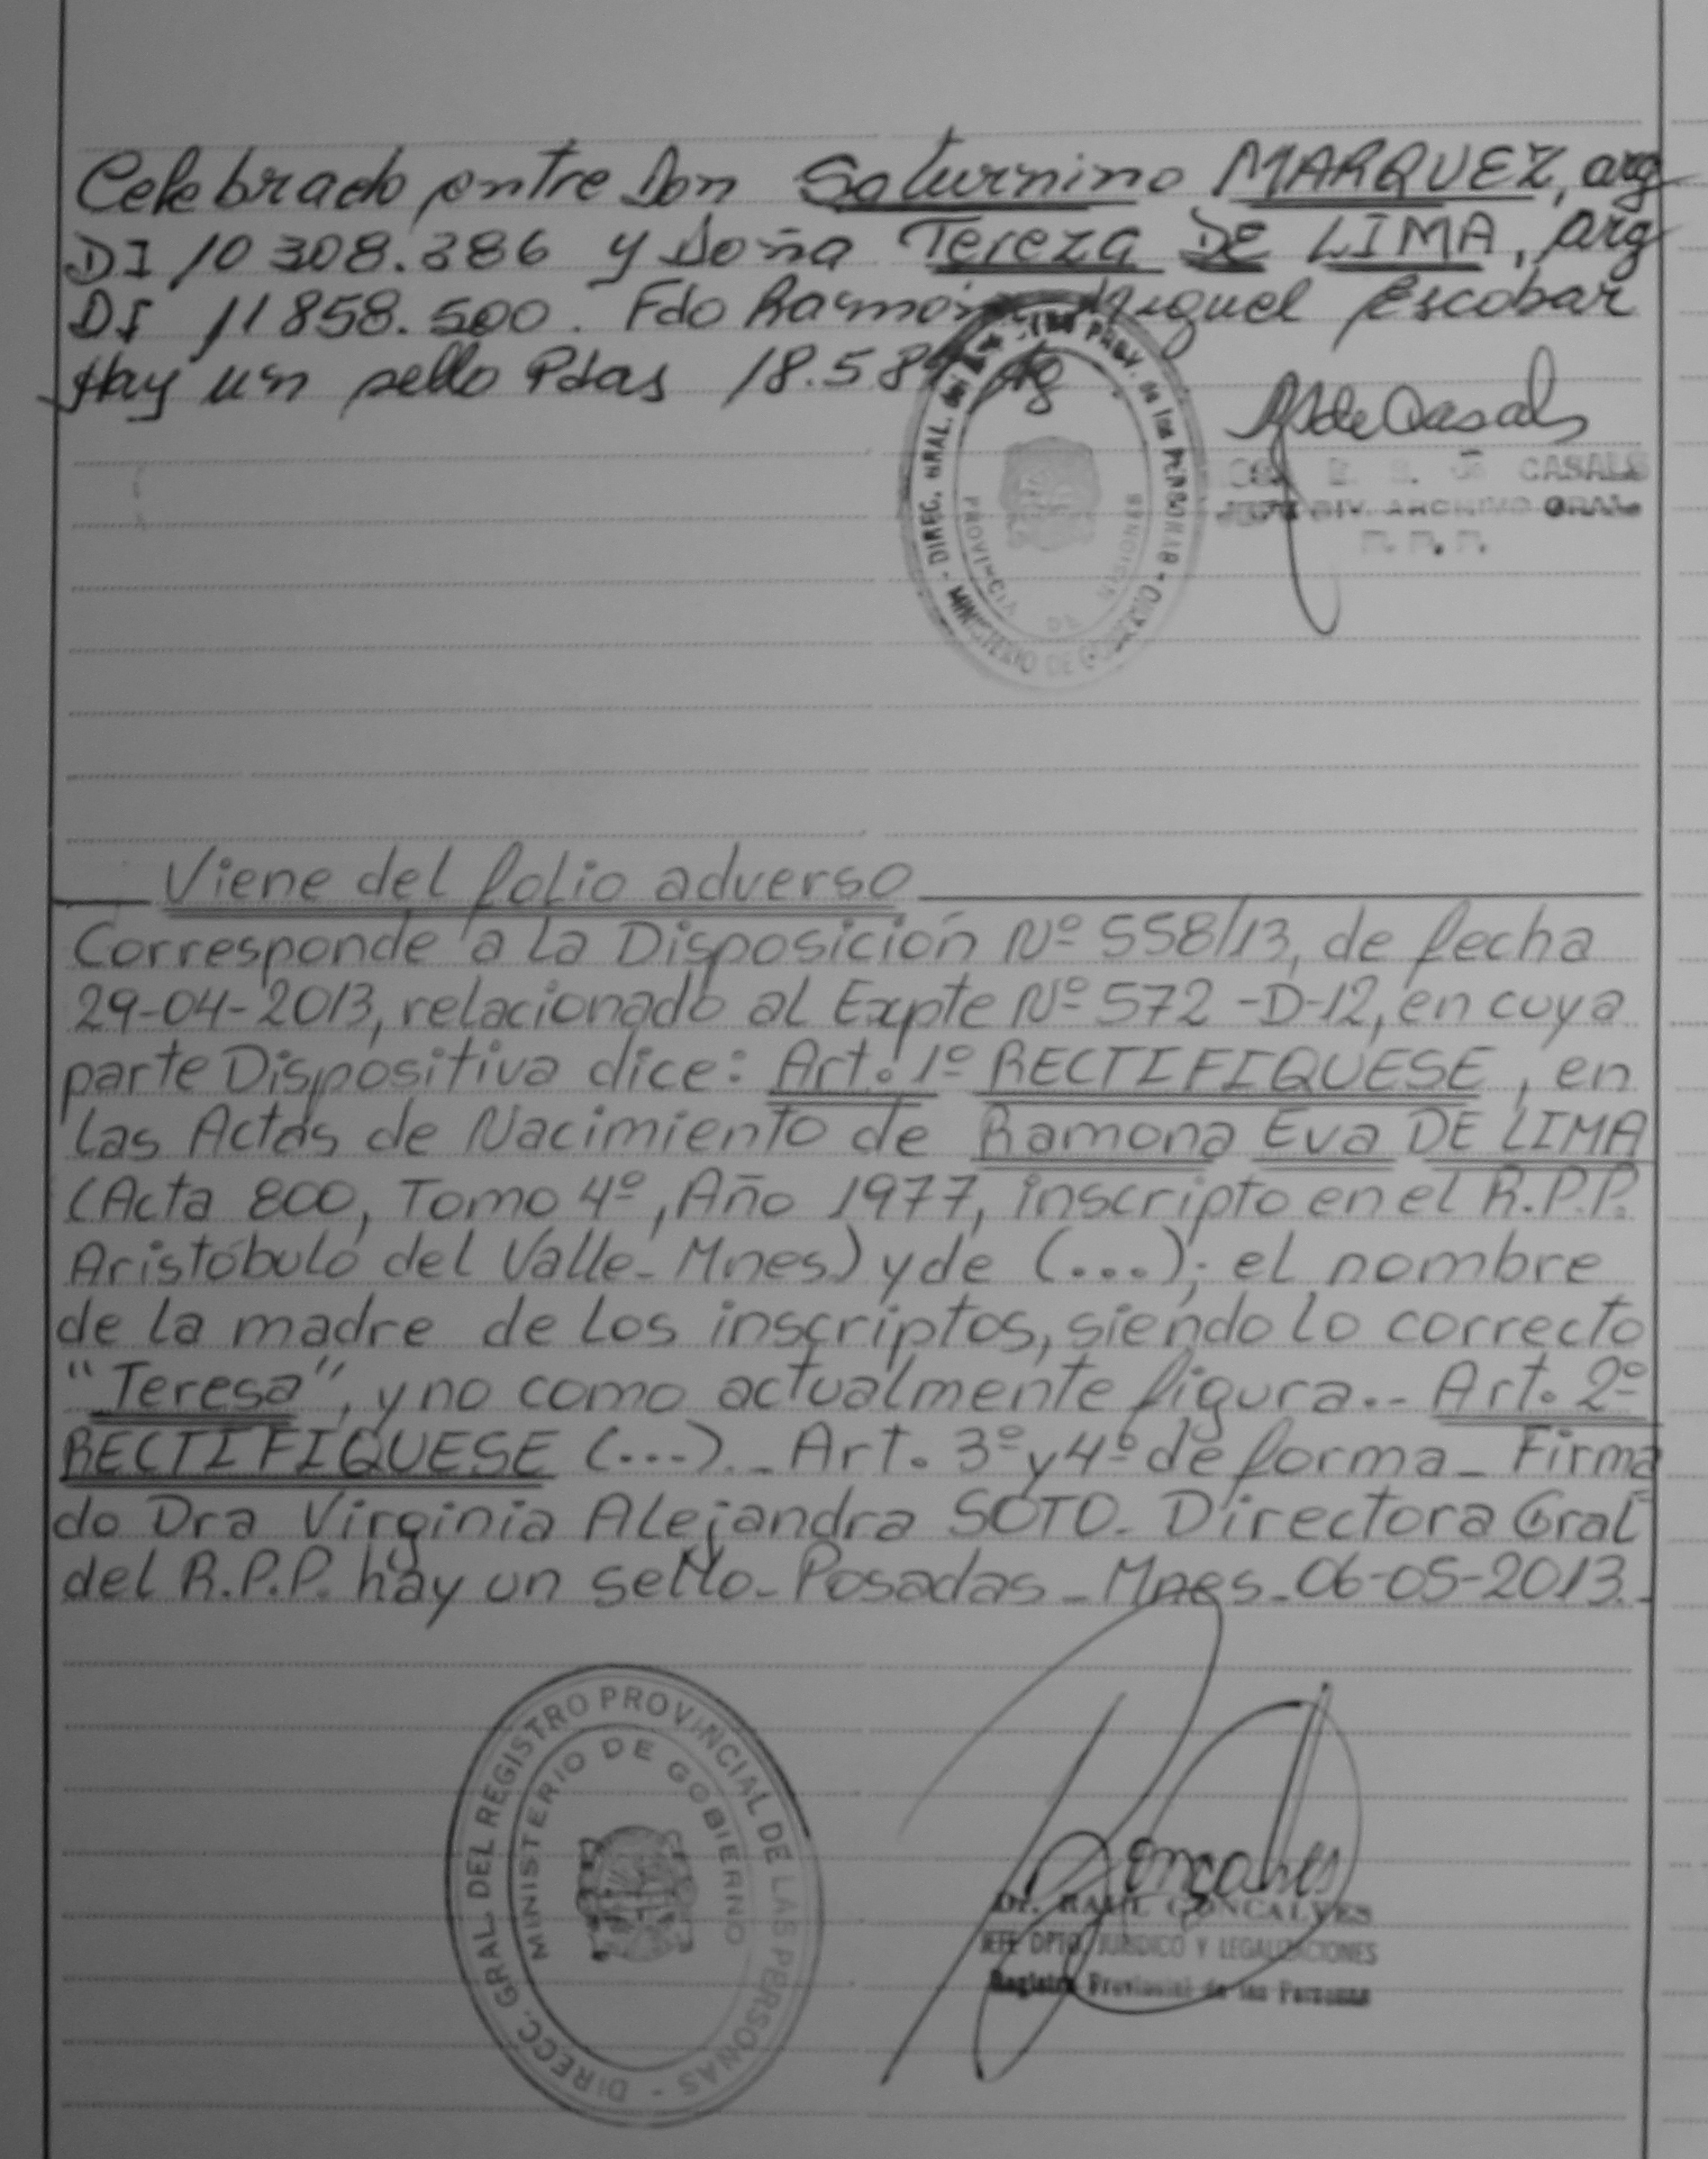 Celebrado entre Don Saturnino MARQUEZ, arg
DI 10 308.386 y Doña Tereza DE LIMA, arg
DI 11 858.500. Fdo Ramón Miguel Escobar
Hay un sello Pdas 18.5.84
CASALS
DIV. ARCHIVO GRAL.
DIREC. GRAL. del Prov. de las PERSONAS - MINISTERIO DE GOBIERNO
PROVINCIA DE MISIONES
Viene del folio adverso
Corresponde a la Disposición Nº 558/13, de fecha
29-04-2013, relacionado al Expte Nº 572 -D-12, en cuya
parte Dispositiva dice: Art. 1º RECTIFIQUESE, en
las Actas de Nacimiento de Ramona Eva DE LIMA
(Acta 800, Tomo 4º, Año 1977, inscripto en el R.P.P.
Aristóbulo del Valle_ Mnes) y de (...); el nombre
de la madre de los inscriptos, siendo lo correcto
"Teresa", y no como actualmente figura.- Art. 2º
RECTIFIQUESE (...)._ Art. 3º y 4º de forma_ Firma
do Dra Virginia Alejandra SOTO_ Directora Gral
del R.P.P. hay un sello_ Posadas_ Mnes_ 06-05-2013._
DIRECC. GRAL. DEL REGISTRO PROVINCIAL DE LAS PERSONAS -
MINISTERIO DE GOBIERNO
Goncalves
Dr. RAUL GONCALVES
JEFE DPTO. JURIDICO Y LEGALIZACIONES
Registro Provincial de las Personas